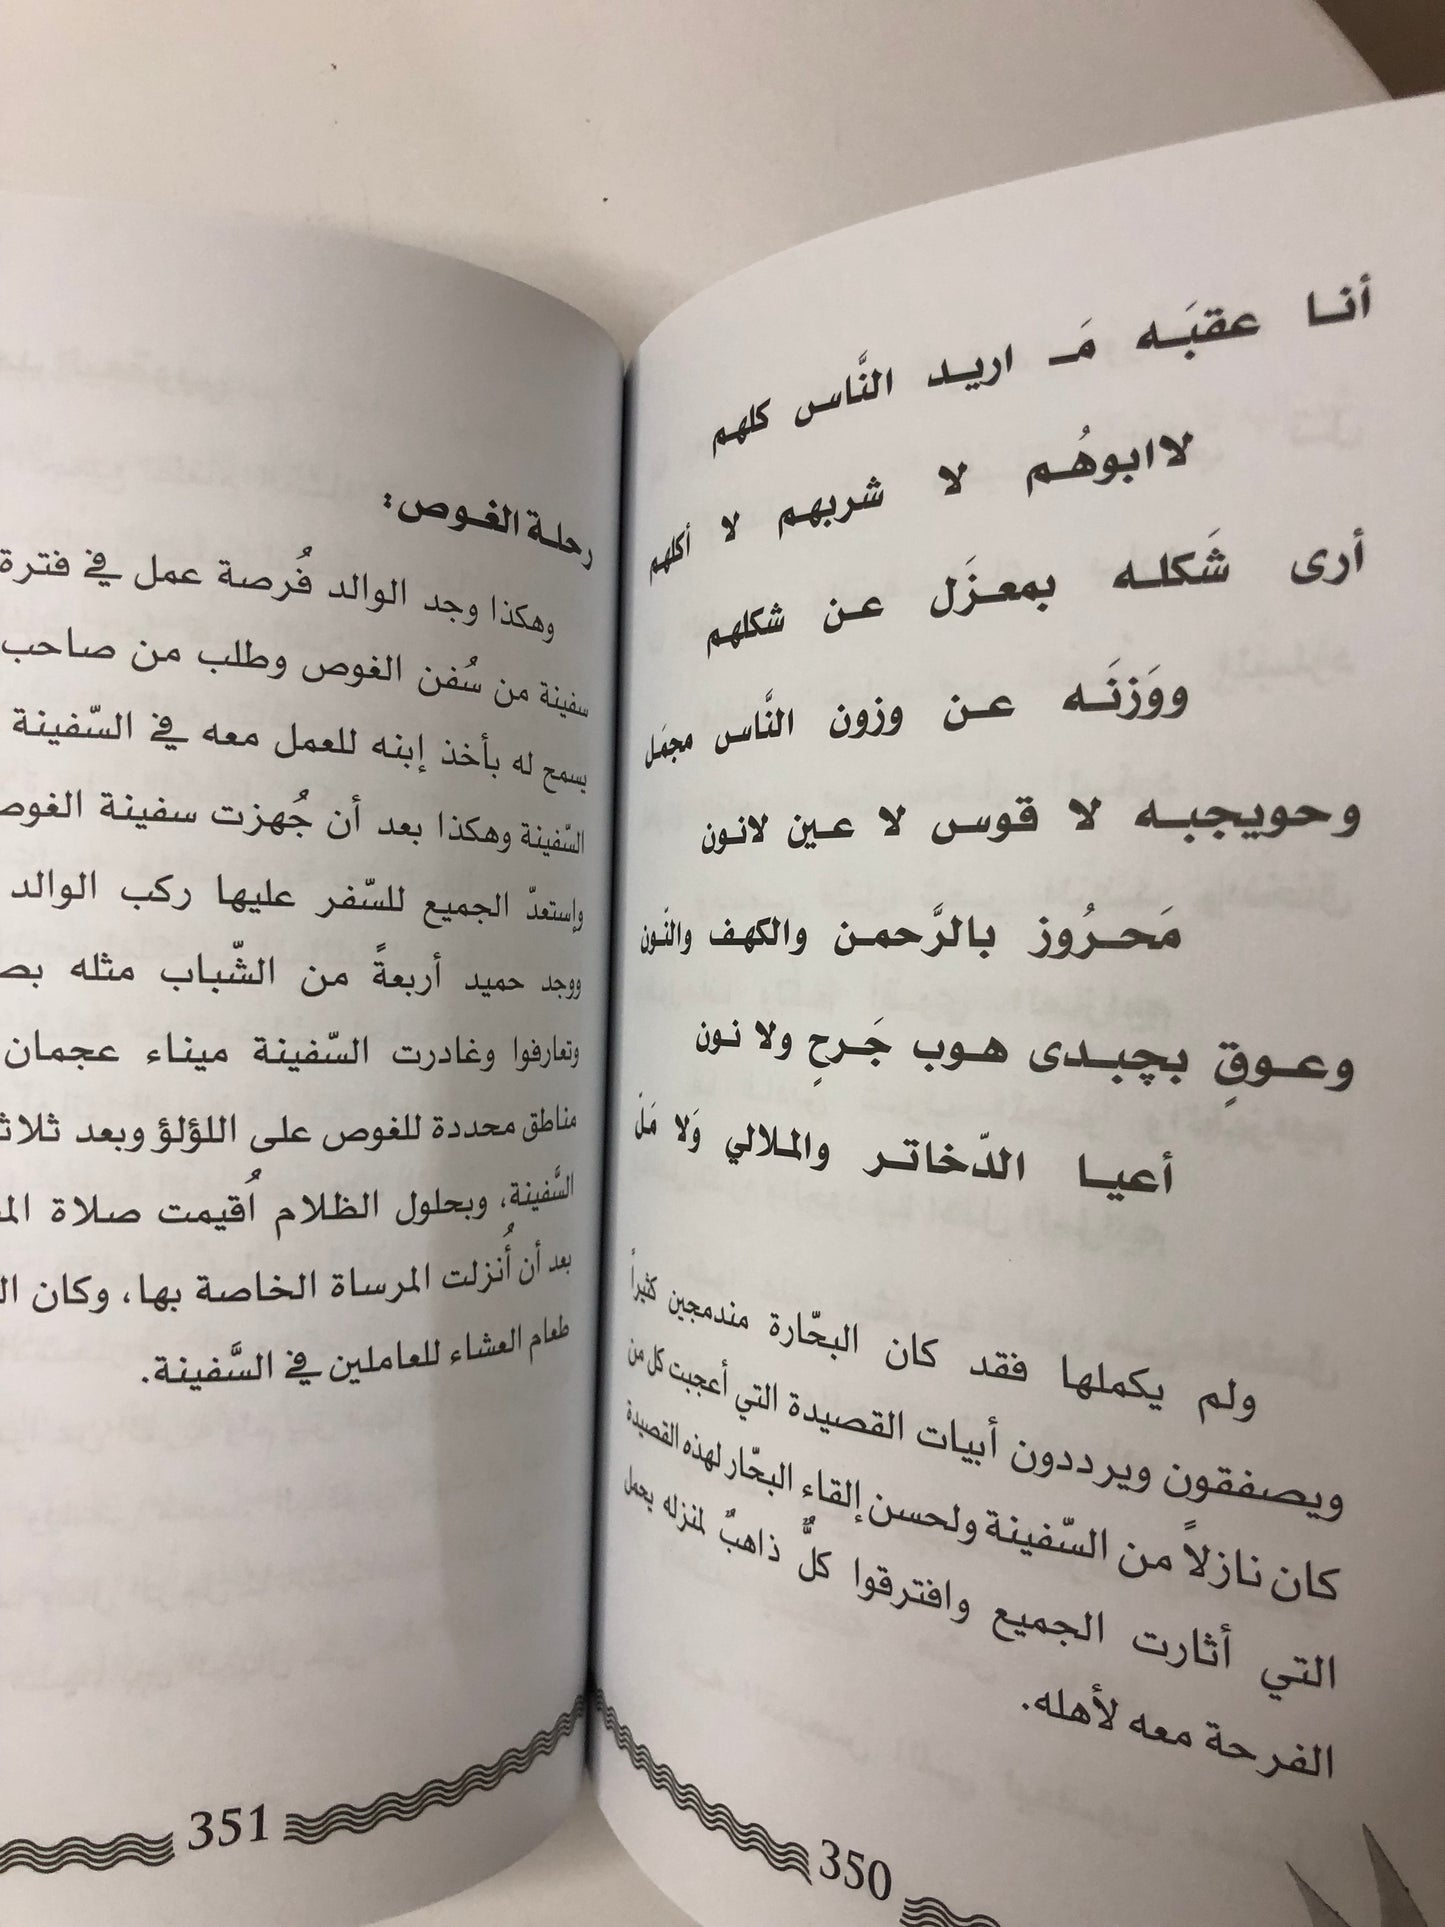 أنا عقبَه مَـ اريد النَّاس كلهم
لاابوهُم لا شربهم لا أكلهم
أرى شَكله بمعزَل عن شكلهم
ووَزنَه عن وزون النَّاس مجمَل
وحويجبه لا قوس لا عين لانون
مَحرُوز بالرَّحمن والكهف والنّون
وعوقٍ بچبدى هوب جَرحٍ ولا نون
أعيا الدّخاتر والملالي وَلا مَلّ
ولم يكملها فقد كان البحّارة مندمجين كثيراً
ويصفقون ويرددون أبيات القصيدة التي أعجبت كل من
كان نازلاً من السّفينة ولحسن إلقاء البحّار لهذه القصيدة
التي أثارت الجميع وافترقوا كلٌّ ذاهبٌ لمنزله يحمل
الفرحة معه لأهله.
350
رحلة الغوص:
وهكذا وجد الوالد فُرصة عمل في فترة
سفينة من سُفن الغوص وطلب من صاحب
يسمح له بأخذ إبنه للعمل معه في السّفينة
السّفينة وهكذا بعد أن جُهزت سفينة الغوص
وإستعدّ الجميع للسّفر عليها ركب الوالد
ووجد حميد أربعةً من الشّباب مثله
وتعارفوا وغادرت السّفينة ميناء عجمان
مناطق محددة للغوص على اللؤلؤ وبعد
السَّفينة، وبحلول الظلام أُقيمت صلاة
بعد أن أُنزلت المرساة الخاصة بها، وكان
طعام العشاء للعاملين في السَّفينة.
351